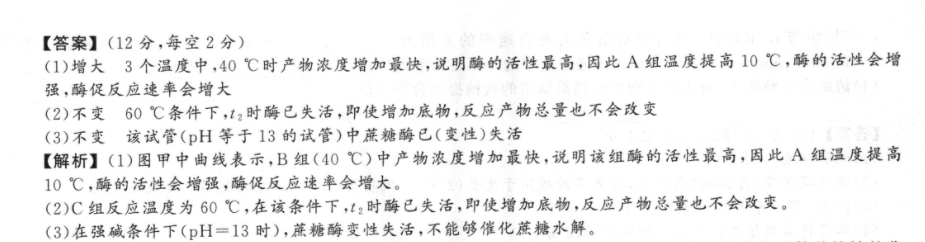 【答案】(12分,每空2分)
(1)增大 3个温度中,40 ℃时产物浓度增加最快,说明酶的活性最高,因此 A 组温度提高 10 ℃,酶的活性会增
强,酶促反应速率会增大
(2)不变 60 ℃条件下,t₂时酶已失活,即使增加底物,反应产物总量也不会改变
(3)不变 该试管(pH 等于 13 的试管)中蔗糖酶已(变性)失活
【解析】(1)图甲中曲线表示,B组(40 ℃)中产物浓度增加最快,说明该组酶的活性最高,因此 A 组温度提高
10 ℃,酶的活性会增强,酶促反应速率会增大。
(2)C组反应温度为 60 ℃,在该条件下,t₂时酶已失活,即使增加底物,反应产物总量也不会改变。
(3)在强碱条件下(pH=13 时),蔗糖酶变性失活,不能够催化蔗糖水解。